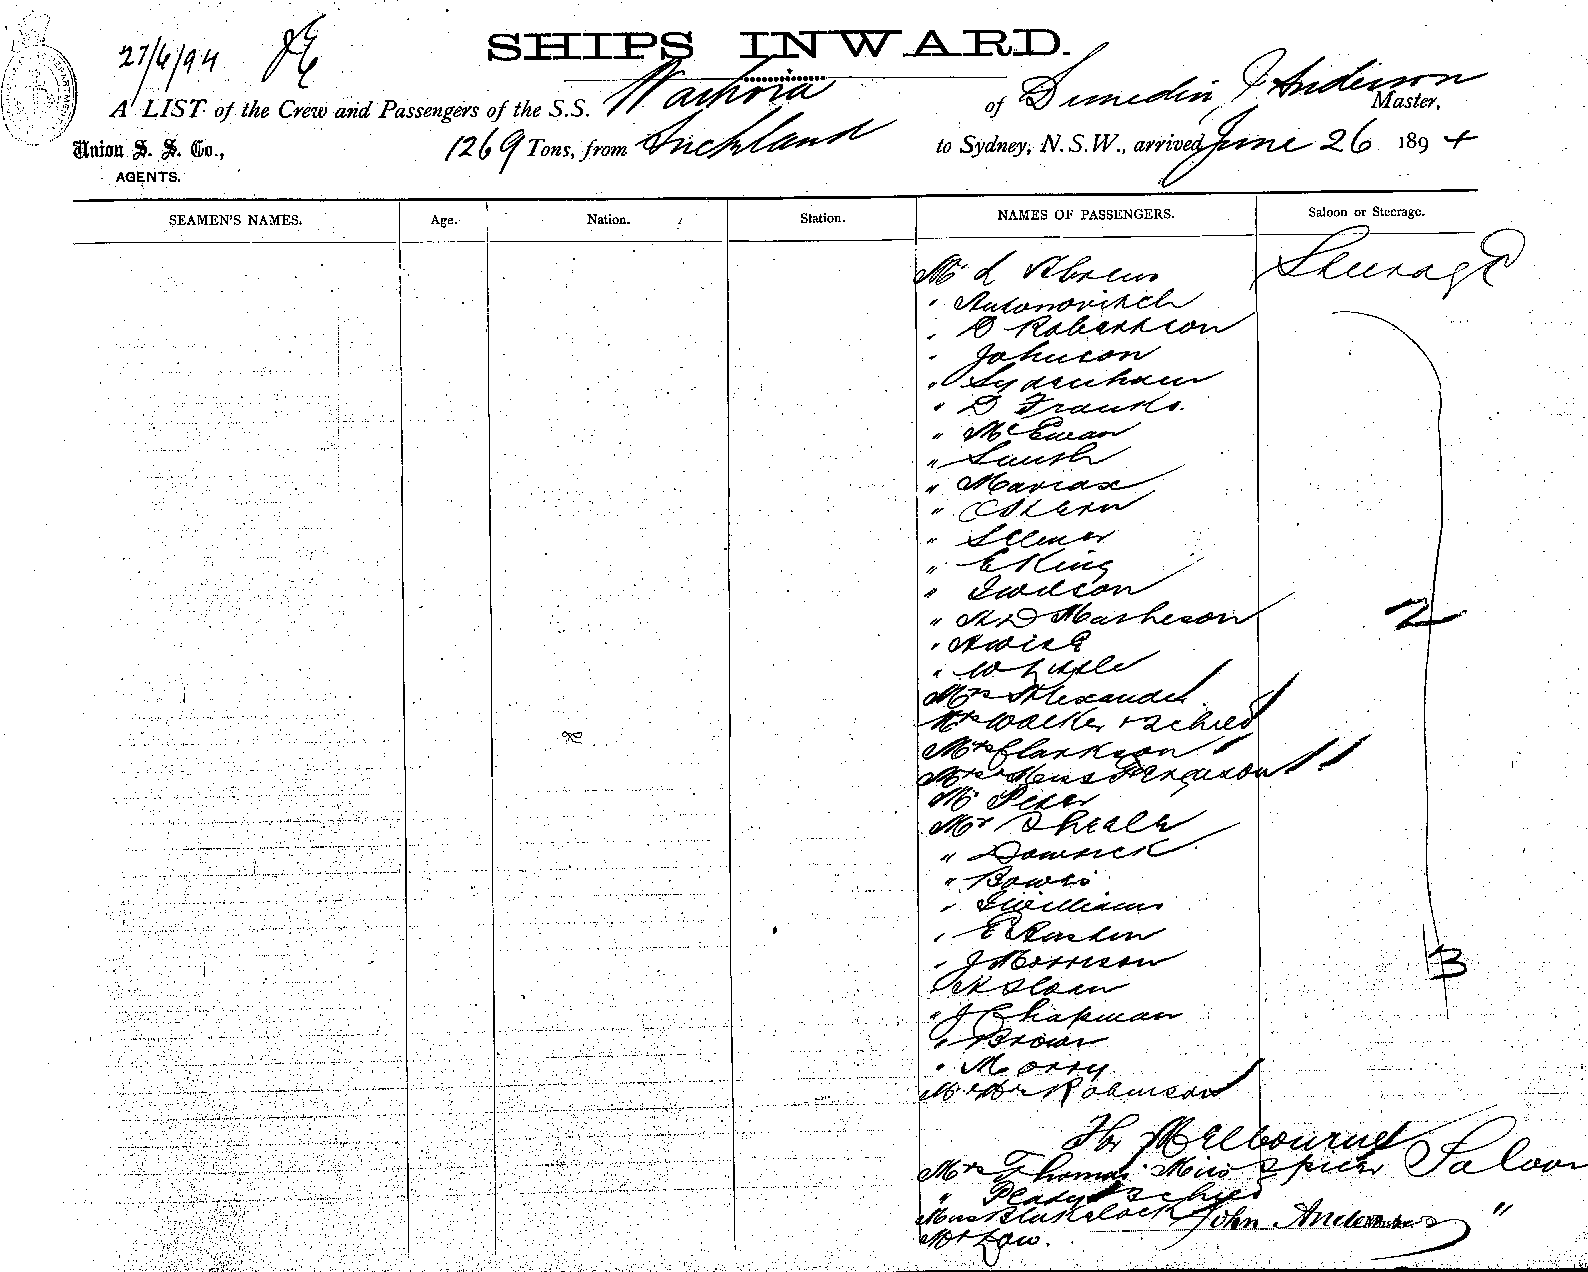 27/6/94
SHIPS INWARD.
A LIST of the Crew and Passengers of the S.S. Waihora of Dunedin, J Anderson Master,
Union S. S. Co., 1269 Tons, from Auckland to Sydney, N.S.W., arrived June 26 1894
AGENTS.
SEAMEN'S NAMES. Age. Nation. Station. NAMES OF PASSENGERS. Saloon or Steerage.
Mr L Abrems Steerage
" Antonovitch
" D Robertson
" Johnson
" Sydenham
" D Franks.
" McEwan
" Smith
" Mariax
" C Stern
"
" E King
" Judson
" A D Matheson
" Awick
" W Lisle
Mrs Alexander
Mrs Walker + 2 chied
Mrs Clarkson
Mrs + Miss Ferguson
Mr Peter
Mr Sheale
"
" Bowes
" J Williams
" E
" J Morrison
" A Sloan
" J Chapman
" Brown
" Morry
Mr Mrs Robinson
2
3
For Melbourne
Mrs Thomas Miss Spicer Saloon
" + 2 chied
Miss Blakelock John Anderson "
Mr Low.